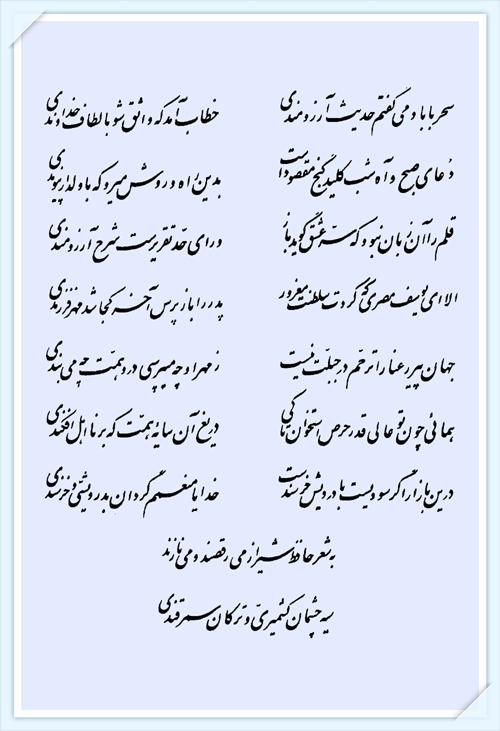 سحر با باد می گفتم حدیث آرزومندی خطاب آمد که واثق شو بالطاف خداوندی
دعای صبح و آه شب کلید گنج مقصود است بدین راه و روش میرو که با دلدار پیوندی
قلم را آن زبان نبود که سر عشق گوید باز ورای حد تقریر است شرح آرزومندی
الا ای یوسف مصری که کردت سلطنت مغرور پدر را باز پرس آخر کجا شد مهر فرزندی
جهان پیر رعنا را ترحم در جبلت نیست ز مهر او چه میپرسی در او همت چه می بندی
همائی چون تو عالی قدر حرص استخوان تا کی دریغ آن سایه همت که بر نا اهل افکندی
درین بازار اگر سودیست با درویش خرسند است خدایا منعمم گردان بدرویشی و خرسندی
به شعر حافظ شیراز می رقصند و می نازند
سیه چشمان کشمیری و ترکان سمرقندی